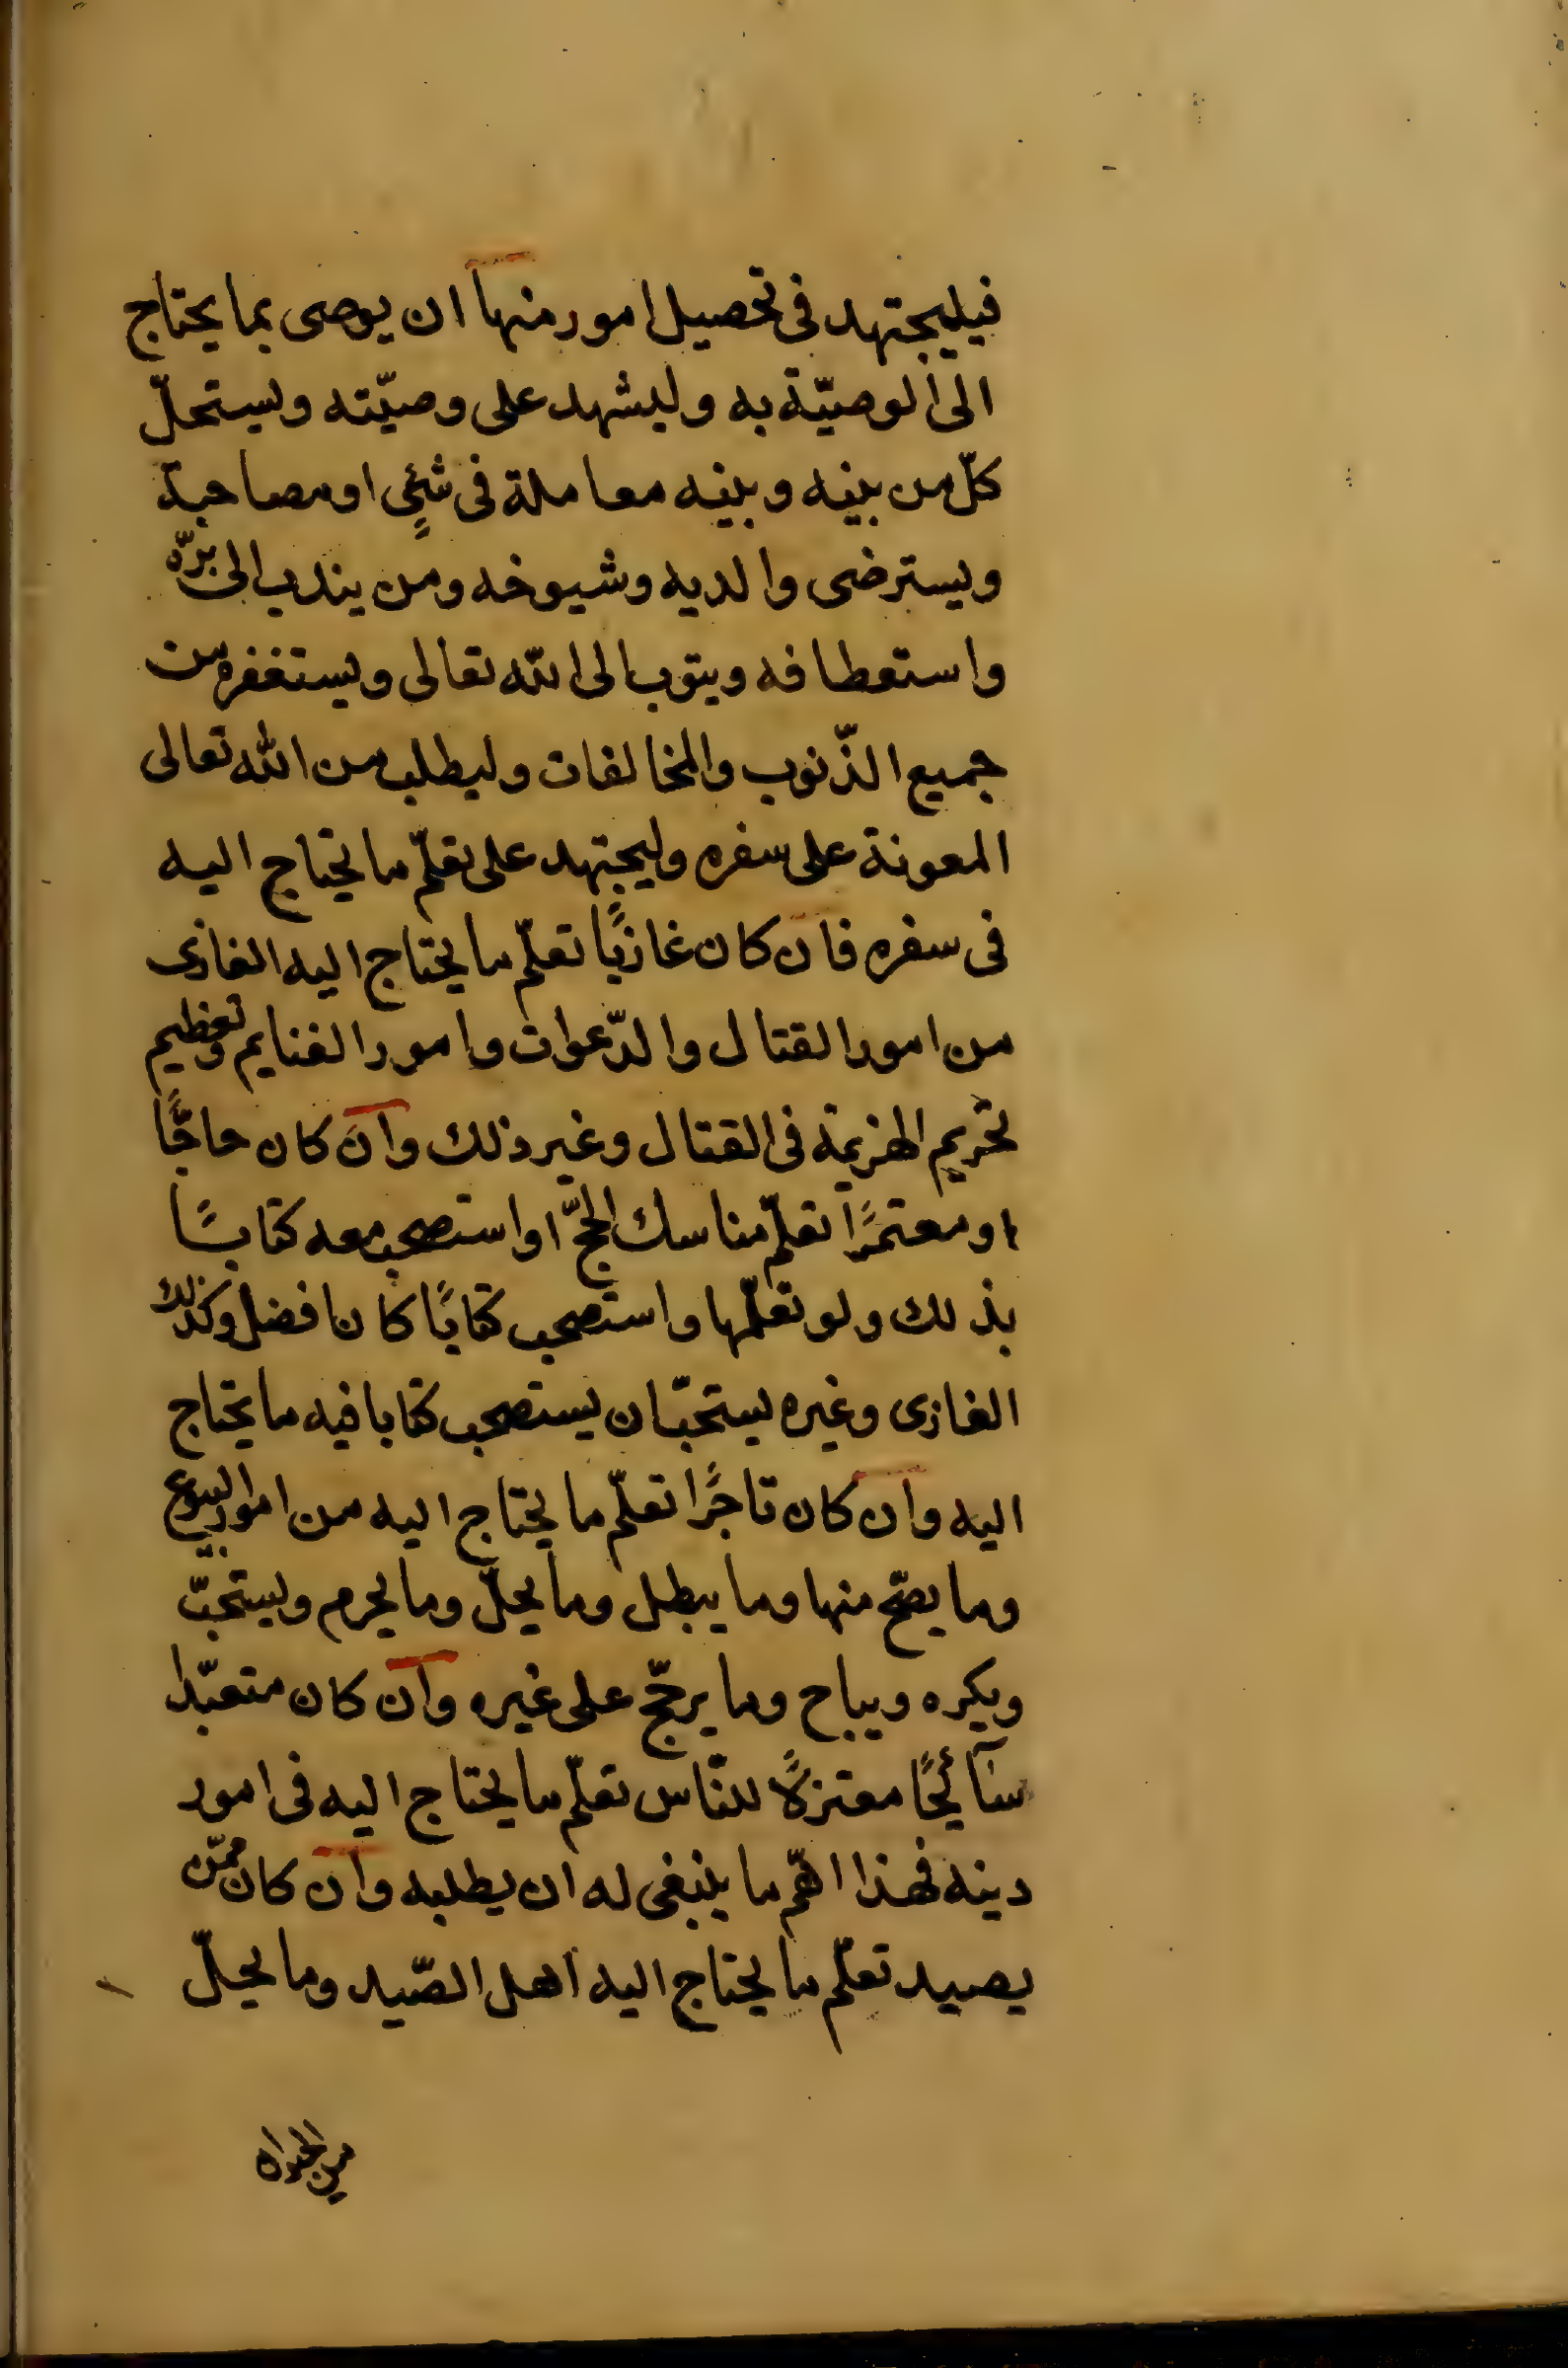 فيليجتهد فى تحصيل امور منها ان يوصى بما يحتاج
الى الوصيّة به وليشهد على وصيّته ويستحلّ
كلّ من بينه وبينه معاملة فى شئٍ او مصاحبة
ويسترضى والديه وشيوخه ومن يندب الى برّه
واستعطافه ويتوب الى الله تعالى ويستغفره من
جميع الذّنوب والمخالفات وليطلب من الله تعالى
المعونة على سفره وليجتهد على تعلّم ما يحتاج اليه
فى سفره فان كان غازيًا تعلّم ما يحتاج اليه الغازى
من امور القتال والدّعوات وامور الغنايم وتعظيم
تحريم الهزيمة فى القتال وغير ذلك وان كان حاجًّا
او معتمرًا تعلّم مناسك الحجّ او استصحب معه كتابًا
بذلك ولو تعلّمها واستصحب كتابًا كان افضل وكذلك
الغازى وغيره يستحبّ ان يستصحب كتابا فيه ما يحتاج
اليه وان كان تاجرًا تعلّم ما يحتاج اليه من امور البيوع
وما يصحّ منها وما يبطل وما يحلّ وما يحرم ويستحبّ
ويكره ويباح وما يرجّح على غيره وان كان متعبّدا
سآئحًا معتزلًا للنّاس تعلّم ما يحتاج اليه فى امور
دينه فهذا اهمّ ما ينبغى له ان يطلبه وان كان ممّن
يصيد تعلّم ما يحتاج اليه اهل الصّيد وما يحلّ
من الحيوان